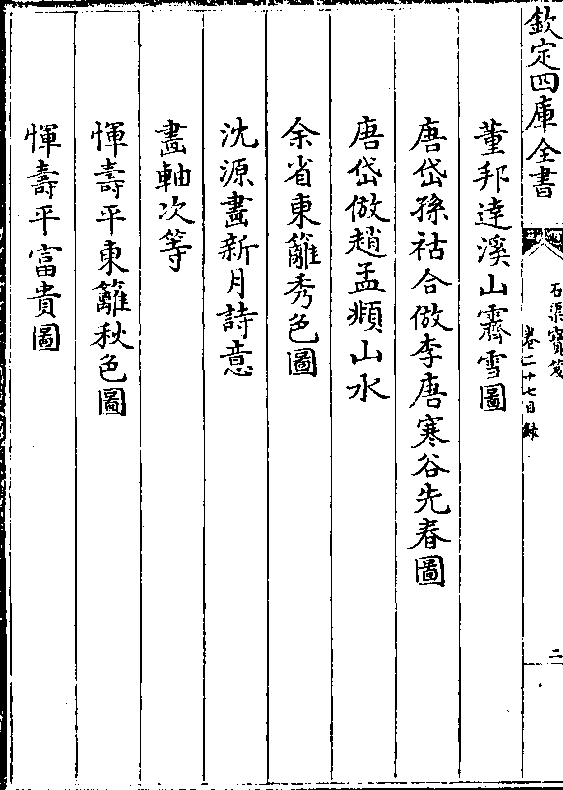 欽定四庫全書
石渠寶笈
卷二十七目錄
二
董邦達溪山霽雪圖
唐岱孫祜合倣李唐寒谷先春圖
唐岱倣趙孟頫山水
余省東籬秀色圖
沈源畫新月詩意
畫軸次等
惲壽平東籬秋色圖
惲壽平富貴圖